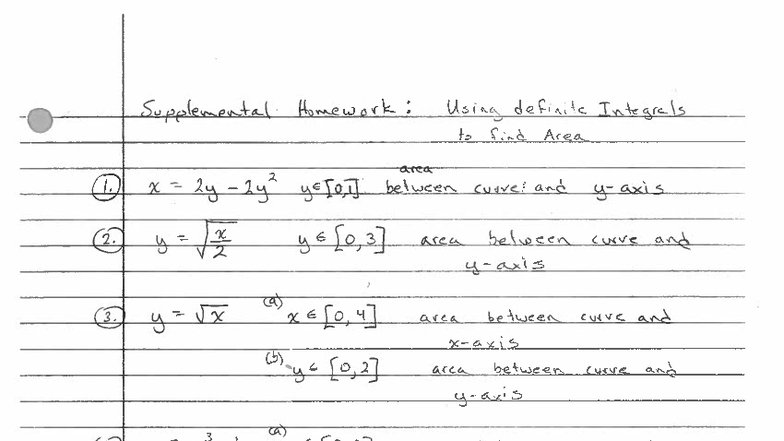 Supplemental Homework: Using definite Integrals
to find Area
1. x = 2y - 2y² y∈[0,1] area between curve and y-axis
2. y = √(x/2) y ∈ [0,3] area between curve and
y-axis
3. y = √x (a) x ∈ [0,4] area between curve and
x-axis
(b) y ∈ [0,2] area between curve and
y-axis
(a)